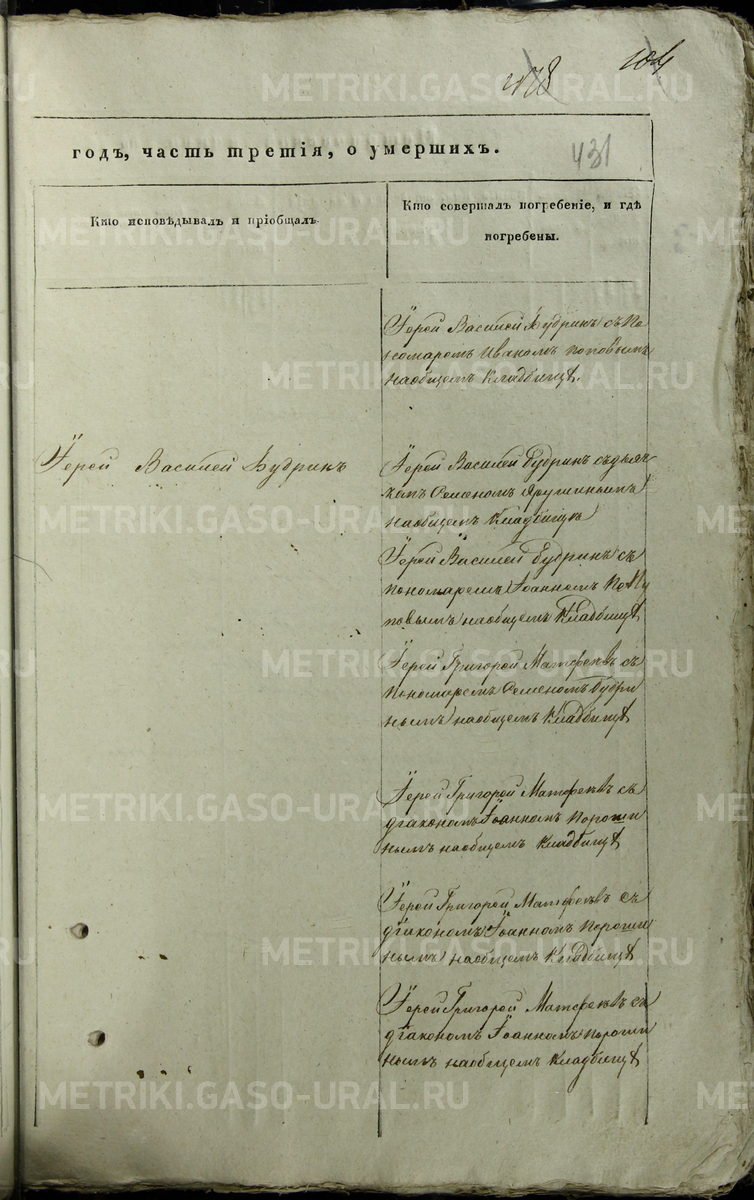 104
431
годъ, часть третія, о умершихъ.
Кто исповѣдывалъ и пріобщалъ.
Кто совершалъ погребеніе, и гдѣ
погребены.
Іерей Василей Будринъ съ по
номаремъ Иваномъ Поповымъ
наобщемъ Кладбищѣ.
Іерей Василей Будринъ
Іерей Василей Будринъ съдьяч
комъ Семеномъ
наобщемъ Кладбищѣ
Іерей Василей Будринъ съ
пономаремъ Іоанномъ По
повымъ наобщемъ Кладбищѣ
Іерей Григорей Матфеевъ съ
пономаремъ Семеномъ Будри
нымъ наобщемъ Кладбищѣ
Іерей Григорей Матфеевъ съ
діакономъ Іоанномъ Пороши
нымъ наобщемъ Кладбищѣ
Іерей Григорей Матфеевъ съ
діакономъ Іоанномъ Пороши
нымъ наобщемъ Кладбищѣ
Іерей Григорей Матфеевъ съ
діакономъ Іоанномъ Пороши
нымъ наобщемъ Кладбищѣ
METRIKI.GASO-URAL.RU